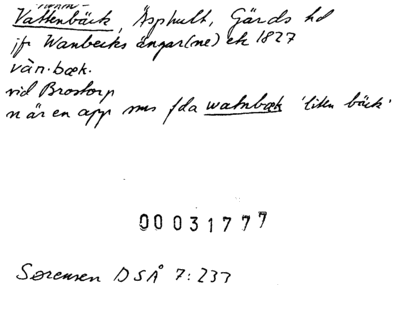 Vattenbäck, Äsphult, Gärds hd
jfr Wanbecks ängar(ne) ek 1827
vàn·bæk.
vid Brostorp
n är en app mns fda watnbæk 'liten bäck'
00031777
Sørensen DSÅ 7:233